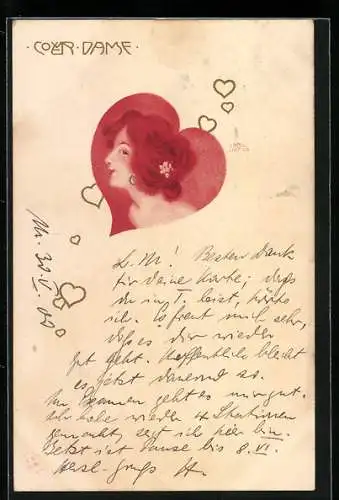 · COEUR · DAME ·
30. V. 02
L. M! Besten Dank
für Deine Karte; dass
du in T. bist, hörte
ich. Es freut mich sehr,
dass es dir wieder
gut geht. Hoffentlich bleibt
es jetzt dauernd so.
Im geht es mir gut.
Ich habe wieder 4
gemacht, seit ich hier bin.
Jetzt ist Pause bis 8. VI.
Herzl. Gruß